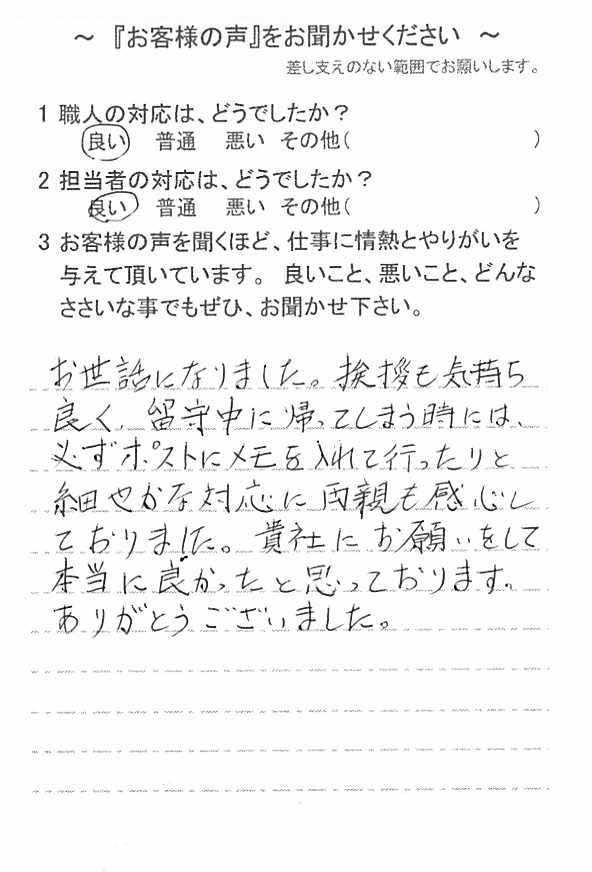 ～ 『お客様の声』をお聞かせください ～
差し支えのない範囲でお願いします。
1 職人の対応は、どうでしたか？
良い 普通 悪い その他( )
2 担当者の対応は、どうでしたか？
良い 普通 悪い その他( )
3 お客様の声を聞くほど、仕事に情熱とやりがいを
与えて頂いています。 良いこと、悪いこと、どんな
ささいな事でもぜひ、お聞かせ下さい。
お世話になりました。挨拶も気持ち
良く、留守中に帰ってしまう時には、
必ずポストにメモを入れて行ったりと
細やかな対応に両親も感心し
ておりました。貴社にお願いをして
本当に良かったと思っております。
ありがとうございました。